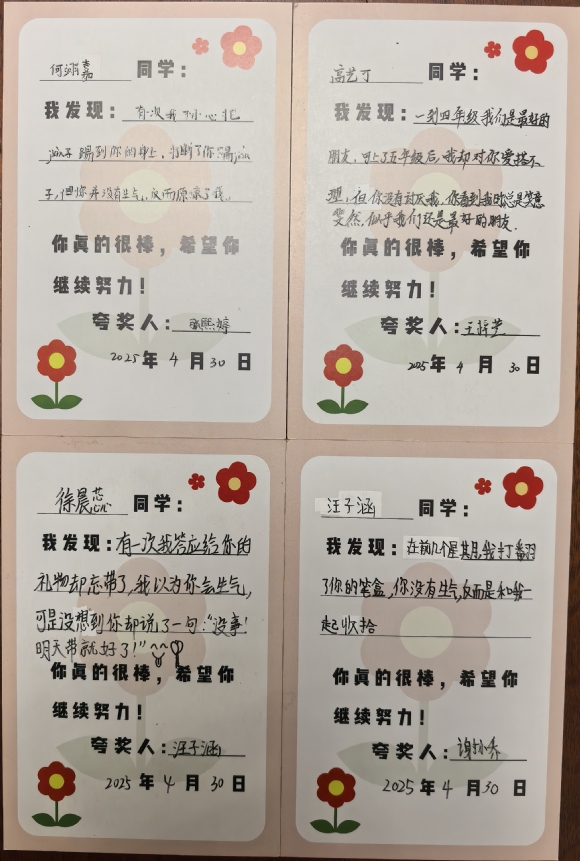 何翊嘉 同学：
我发现：有次我不小心把
踢到你的身上，打断了你踢
子，但你并没有生气，反而原谅了我。
你真的很棒，希望你
继续努力！
夸奖人：熙婷
2025年 4 月 30 日
高艺可 同学：
我发现：一到四年级我们是最好的
朋友，可上了五年级后，我却对你爱搭不
理，但你没有讨厌我，你看到我时总是笑意
笑然，似乎我们还是最好的朋友.
你真的很棒，希望你
继续努力！
夸奖人：王梓芝
2025年 4 月 30 日
徐晨芯 同学：
我发现：有一次我答应给你的
礼物却忘带了，我以为你会生气，
可是没想到你却说了一句：“没事！
明天带就好了！”
你真的很棒，希望你
继续努力！
夸奖人：汪子涵
2025 年 4 月 30 日
汪子涵 同学：
我发现：在前几个星期，我打翻
了你的笔盒，你没有生气，反而是和我一
起收拾
你真的很棒，希望你
继续努力！
夸奖人：谢小乔
2025 年 4 月 30 日